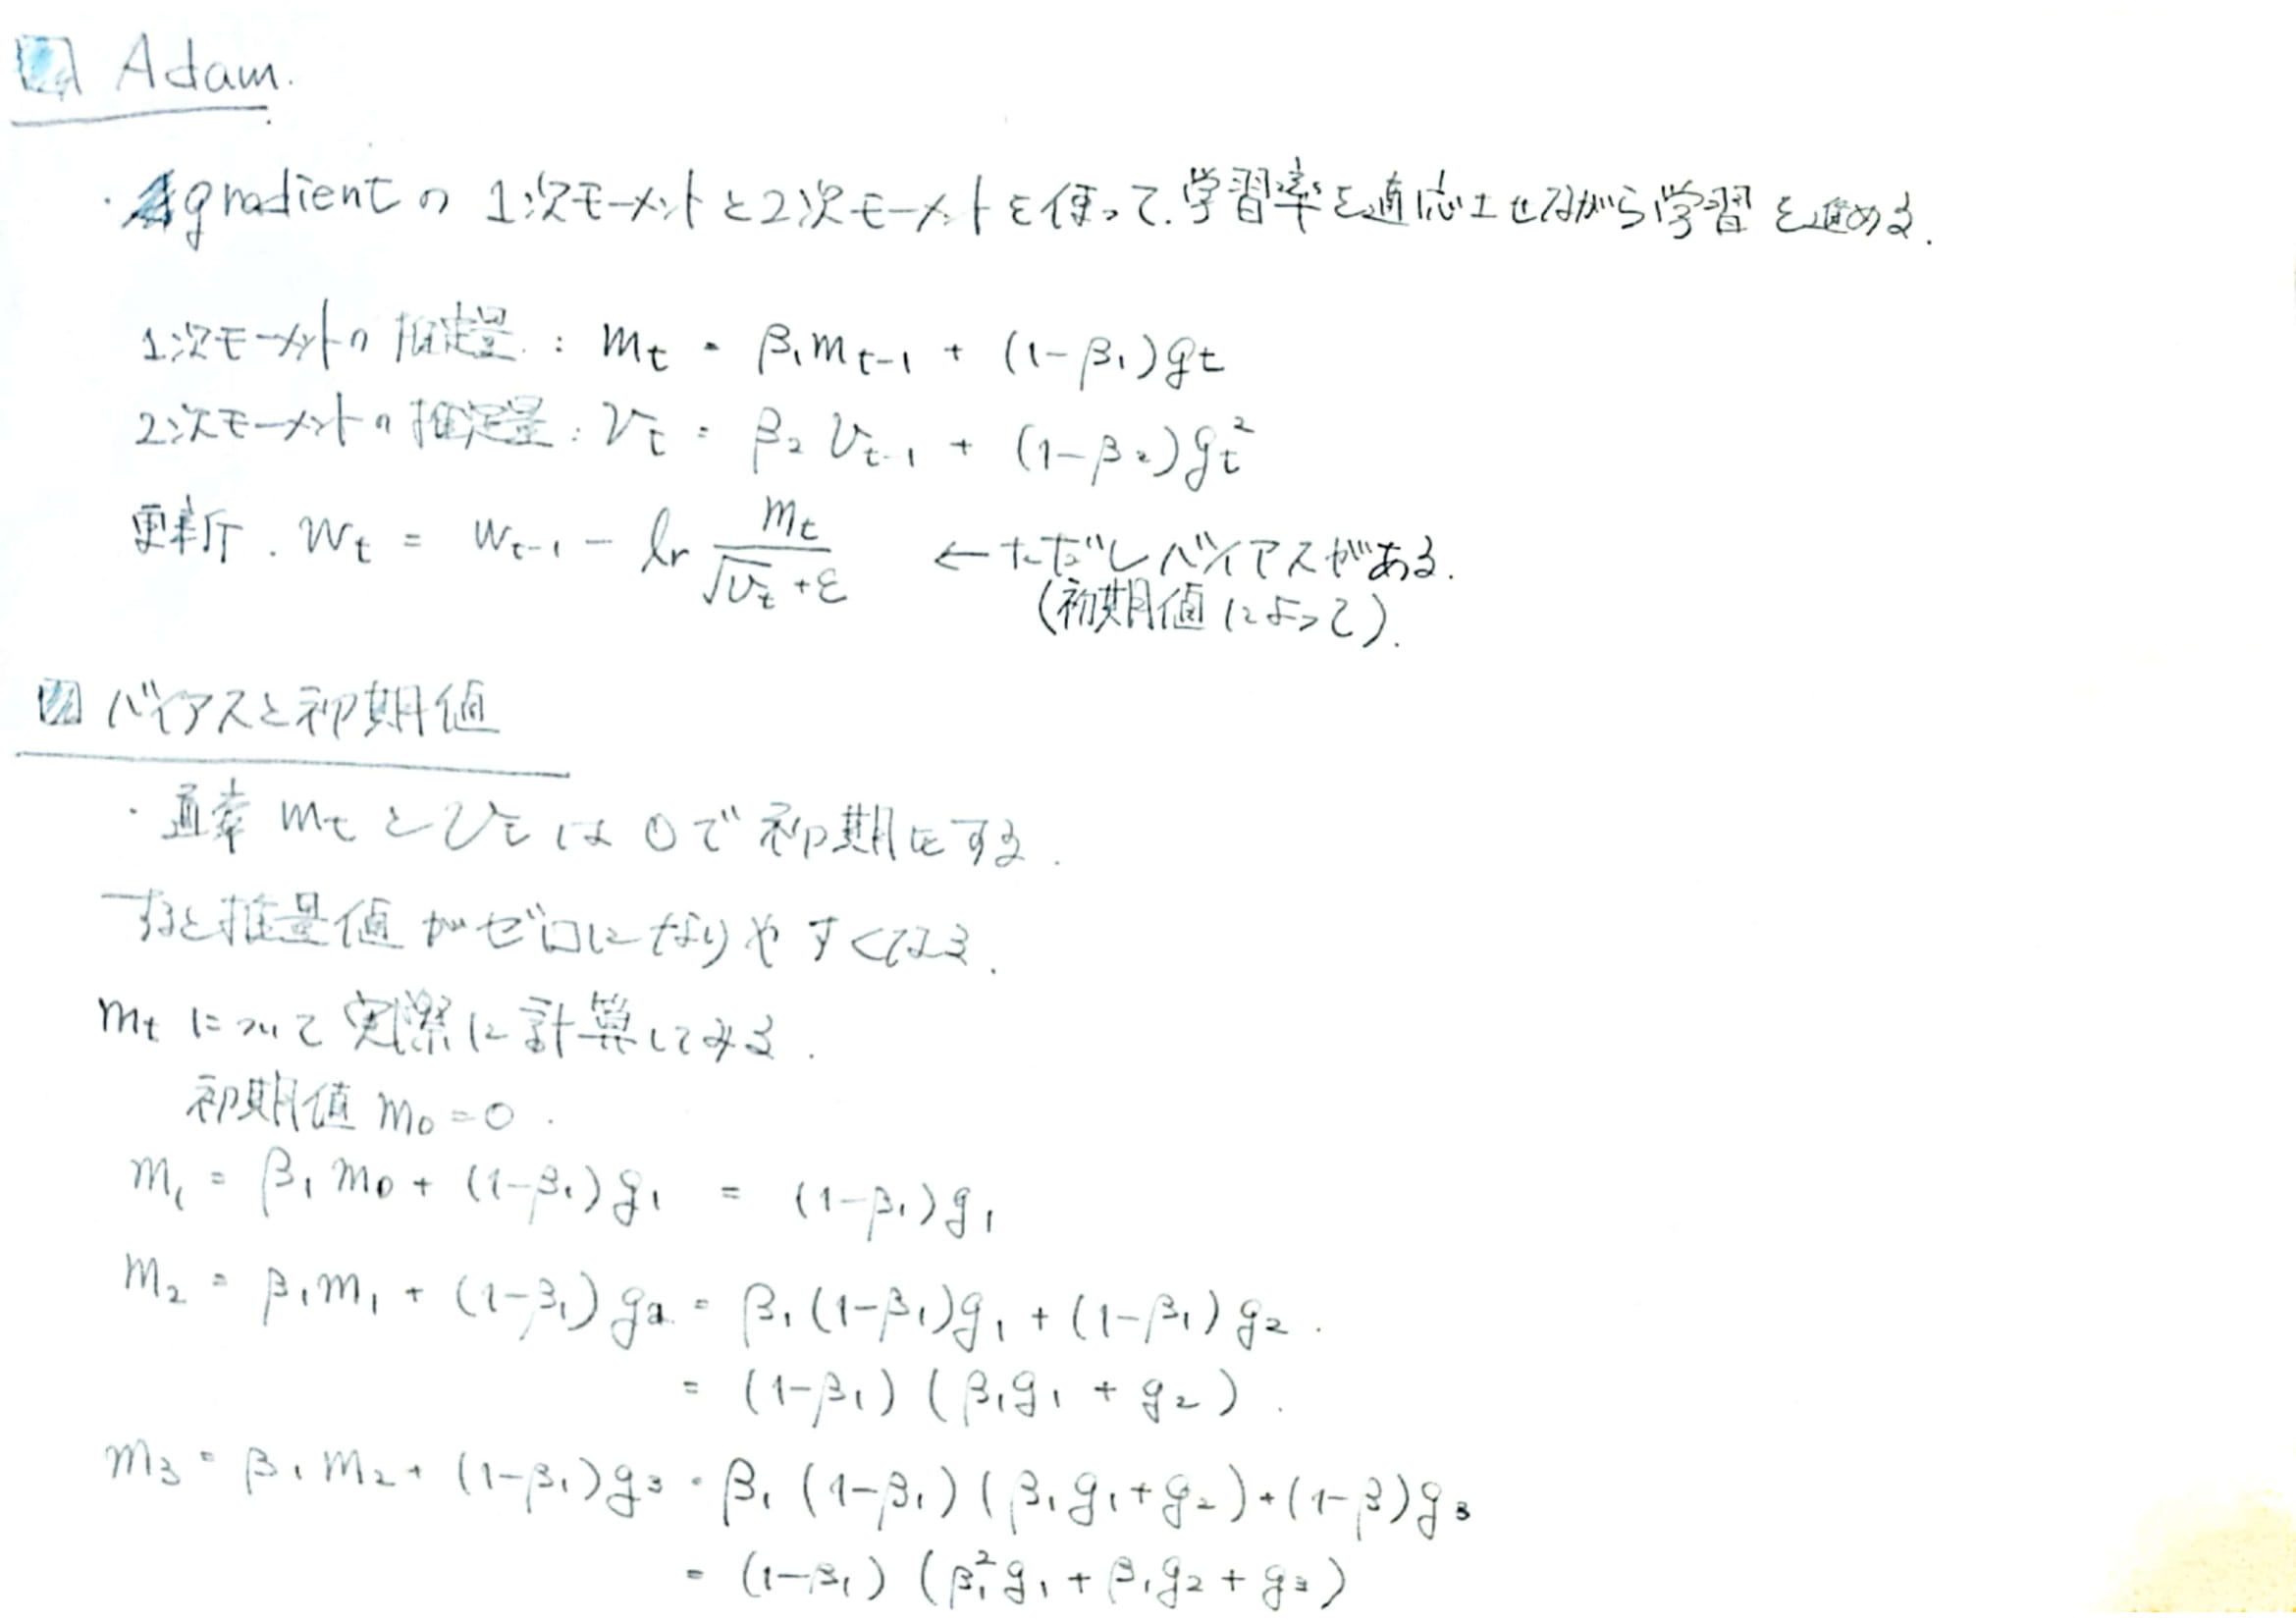 Adam.
・gradientの1次モーメントと2次モーメントを使って、学習率を適応させながら学習を進める.
1次モーメントの推定量 : mt = β1mt-1 + (1-β1)gt
2次モーメントの推定量 : vt = β2 vt-1 + (1-β2)gt^2
更新. wt = wt-1 - lr mt / (√vt + ε) ← ただしバイアスがある.
(初期値によって).
バイアスと初期値
・通常 mt と vt は 0で初期化する.
すると推量値がゼロになりやすくなる.
mt について実際に計算してみる.
初期値 m0 = 0.
m1 = β1 m0 + (1-β1)g1 = (1-β1)g1
m2 = β1m1 + (1-β1)g2 = β1(1-β1)g1 + (1-β1)g2.
= (1-β1)(β1g1 + g2).
m3 = β1m2 + (1-β1)g3 = β1(1-β1)(β1g1+g2)+(1-β)g3
= (1-β1)(β1^2g1 + β1g2 + g3)